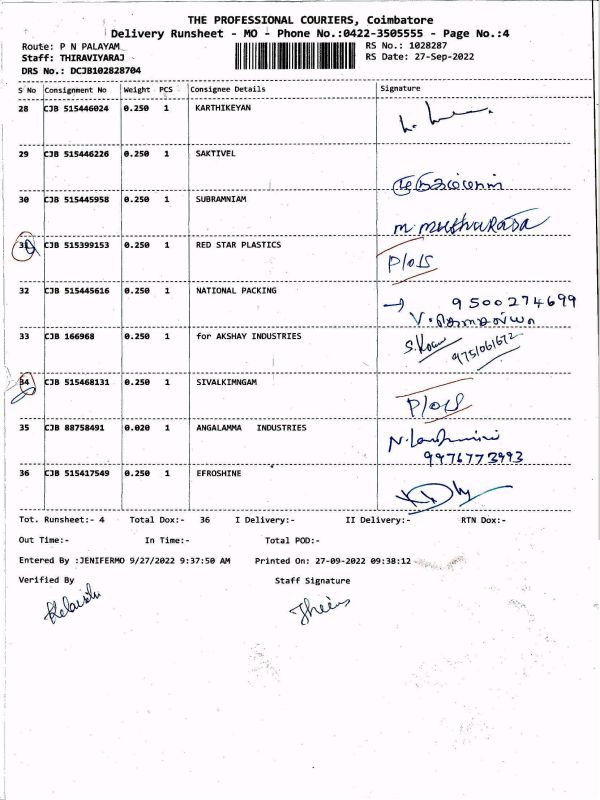 THE PROFESSIONAL COURIERS, Coimbatore
Delivery Runsheet - MO - Phone No.:0422-3505555 - Page No.:4
Route: P N PALAYAM RS No.: 1028287
Staff: THIRAVIYARAJ RS Date: 27-Sep-2022
DRS No.: DCJB102828704
S No Consignment No Weight PCS Consignee Details Signature
28 CJB 515446024 0.250 1 KARTHIKEYAN
29 CJB 515446226 0.250 1 SAKTIVEL
30 CJB 515445958 0.250 1 SUBRAMNIAM
m.muthuRasa
31 CJB 515399153 0.250 1 RED STAR PLASTICS
32 CJB 515445616 0.250 1 NATIONAL PACKING
9500274699
33 CJB 166968 0.250 1 for AKSHAY INDUSTRIES
9751061672
34 CJB 515468131 0.250 1 SIVALKIMNGAM
35 CJB 88758491 0.020 1 ANGALAMMA INDUSTRIES
9976773993
36 CJB 515417549 0.250 1 EFROSHINE
Tot. Runsheet:- 4 Total Dox:- 36 I Delivery:- II Delivery:- RTN Dox:-
Out Time:- In Time:- Total POD:-
Entered By :JENIFERMO 9/27/2022 9:37:50 AM Printed On: 27-09-2022 09:38:12
Verified By Staff Signature